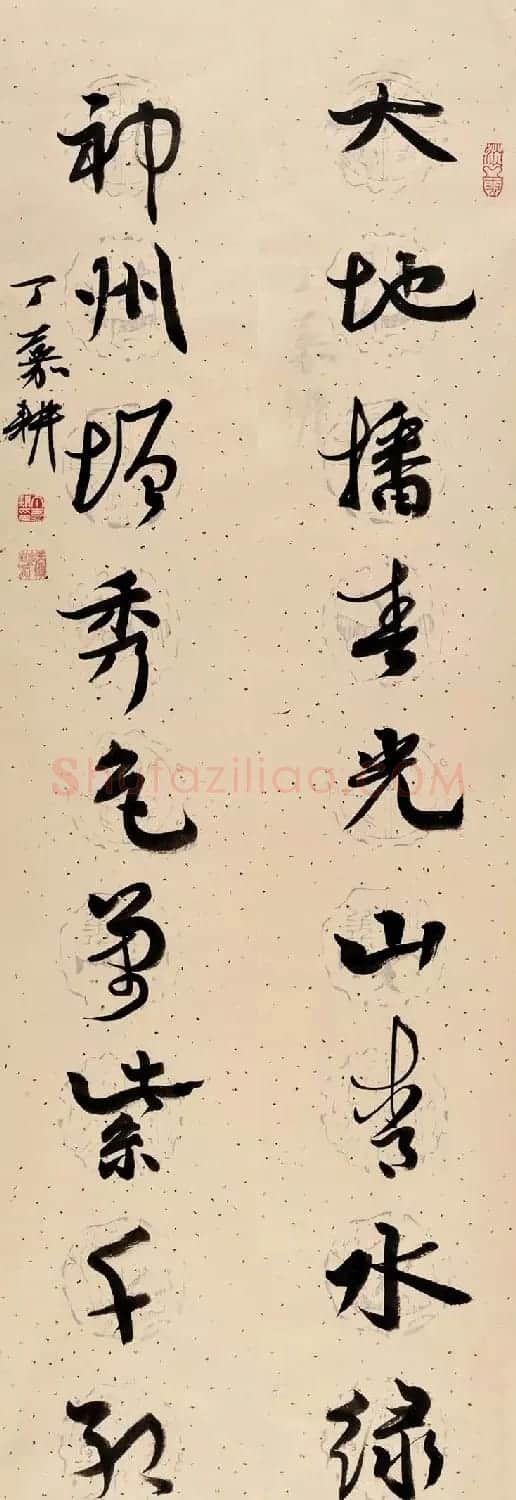 大地播春光山青水绿
神州增秀色萬紫千红
丁慕耕
Shufaziliao.COM